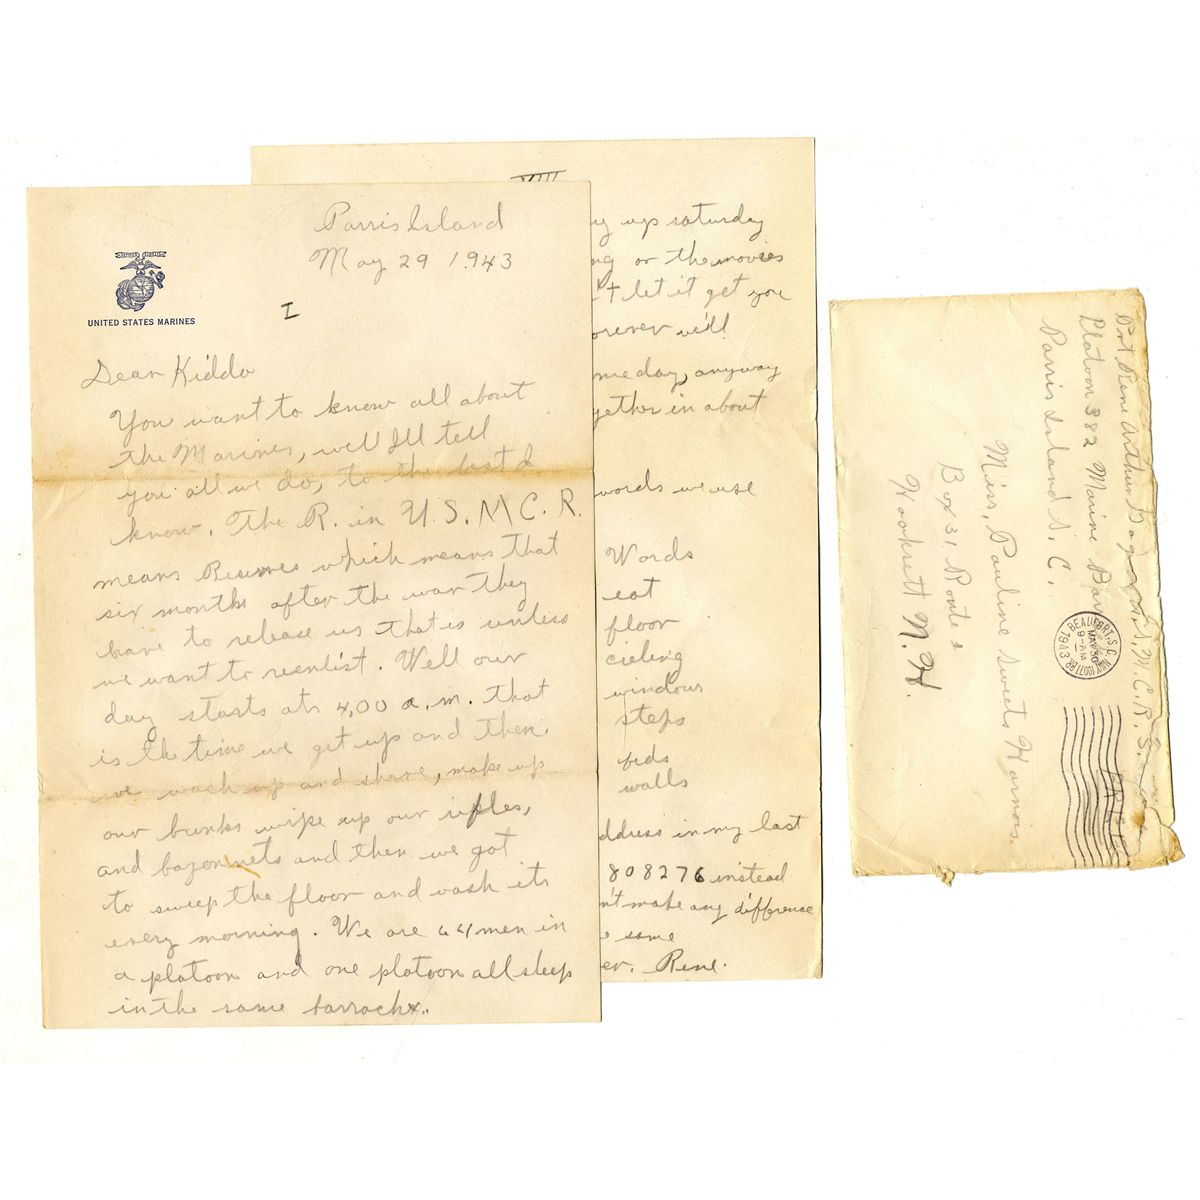 Parris Island
May 29 1943
UNITED STATES MARINES
I
Dear Kiddo
You want to know all about
the Marines, well I'll tell
you all we do, to the best I
know. The R. in U.S.M C.R.
means Reserves which means that
six months after the war they
have to release us that is unless
we want to reenlist. Well our
day starts at 4,00 a.m. that
is the time we get up and then
we wash up and shave, make up
our bunks wipe up our rifles,
and bayonnets and then we got
to sweep the floor and wash it
every morning. We are 64 men in
a platoon and one platoon all sleep
in the same barracks.
VIII
up saturday
or the movies
let it get you
we'll
someday, anyway
in about
words we use
Words
eat
floor
cieling
windows
steps
beds
walls
address in my last
808276 instead
make any difference
same
Rene.
Pvt. Rene Arthur U.S.M.C.R.
Platoon 382 Marine
Parris Island S. C.
Miss, Pauline Sweets Harnois
Box 31, Route 2
Hooksett N. H.
BEAUFORT, S.C.
MAY 30
9-AM
1943